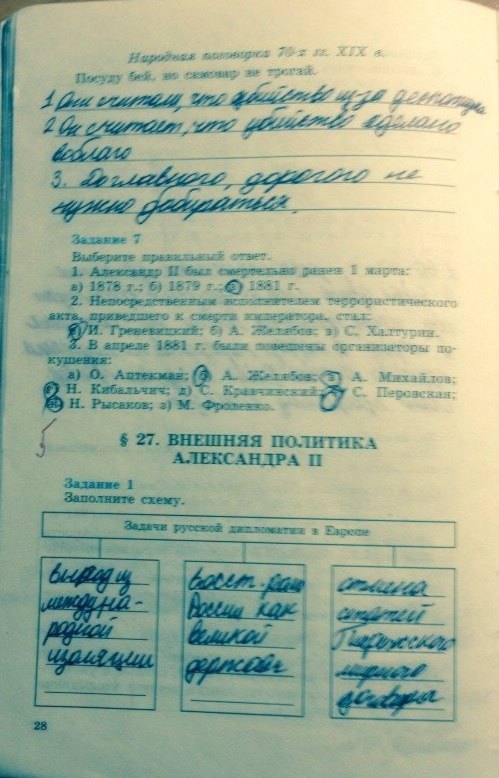 Народная поговорка 70-х гг. XIX в.
Посуду бей, но самовар не трогай.
1 Они считали, что убийство из-за деспотизма
2 Он считает, что убийство сделано
во благо
3. До главного, дорогого не
нужно добираться.
Задание 7
Выберите правильный ответ.
1. Александр II был смертельно ранен 1 марта:
а) 1878 г.; б) 1879 г.; в) 1881 г.
2. Непосредственным исполнителем террористического
акта, приведшего к смерти императора, стал:
а) И. Гриневицкий; б) А. Желябов; в) С. Халтурин.
3. В апреле 1881 г. были повешены организаторы по-
кушения:
а) О. Аптекман; б) А. Желябов; в) А. Михайлов;
г) Н. Кибальчич; д) С. Кравчинский; е) С. Перовская;
ж) Н. Рысаков; з) М. Фроленко.
5
§ 27. ВНЕШНЯЯ ПОЛИТИКА
АЛЕКСАНДРА II
Задание 1
Заполните схему.
Задачи русской дипломатии в Европе
выход из
междуна-
родной
изоляции
восст-
России как
великой
державы
отмена
статей
Парижского
мирного
договора
28